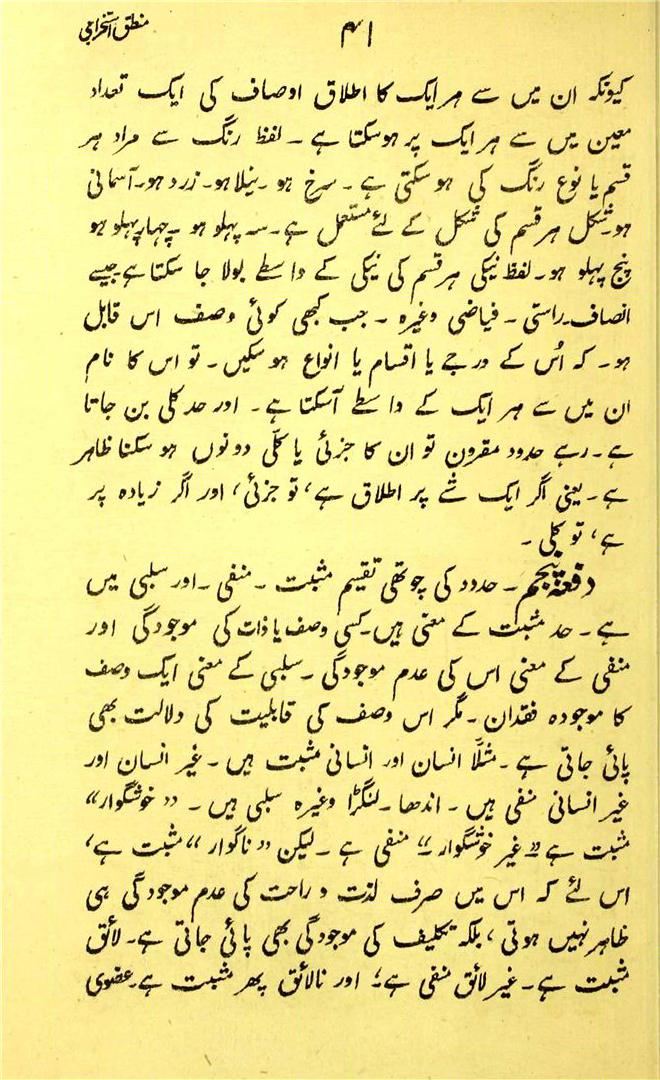 منطق استخراجی
۴۱
کیونکہ ان میں سے ہر ایک کا اطلاق اوصاف کی ایک تعداد
معین میں سے ہر ایک پر ہوسکتا ہے ۔ لفظ رنگ سے مراد ہر
قسم یا نوع رنگ کی ہو سکتی ہے ۔ سرخ ہو ۔ نیلا ہو ۔ زرد ہو ۔ آسمانی
ہو ۔ شکل ہر قسم کی شکل کے لئے مستعمل ہے ۔ سہ پہلو ہو ۔ چہار پہلو ہو
پنج پہلو ہو ۔ لفظ نیکی ہر قسم کی نیکی کے واسطے بولا جا سکتا ہے ۔ جیسے
انصاف ۔ راستی ۔ فیاضی وغیرہ ۔ جب کبھی کوئی وصف اس قابل
ہو ۔ کہ اُس کے درجے یا اقسام یا انواع ہو سکیں ۔ تو اس کا نام
ان میں سے ہر ایک کے واسطے آسکتا ہے ۔ اور حد کلی بن جاتا
ہے ۔ رہے حدود مقرون تو ان کا جزئی یا کلّی دونوں ہو سکنا ظاہر
ہے ۔ یعنی اگر ایک شے پر اطلاق ہے ، تو جزئی ، اور اگر زیادہ پر
ہے ، تو کلی ۔
دفعہ پنجم ۔ حدود کی چوتھی تقیسم مثبت ۔ منفی ۔ اور سلبی میں
ہے ۔ حد مثبت کے معنی ہیں ۔ کسی وصف یا ذات کی موجودگی اور
منفی کے معنی اس کی عدم موجودگی ۔ سلبی کے معنی ایک وصف
کا موجودہ فقدان ۔ مگر اس وصف کی قابلیت کی دلالت بھی
پائی جاتی ہے ۔ مثلًا انسان اور انسانی مثبت ہیں ۔ غیر انسان اور
غیر انسانی منفی ہیں ۔ اندھا ۔ لنگڑا وغیرہ سلبی ہیں ۔ ” خوشگوار “
مثبت ہے ” غیر خوشگوار “ منفی ہے ۔ لیکن ” ناگوار “ مثبت ہے ،
اس لئے کہ اس میں صرف لذت و راحت کی عدم موجودگی ہی
ظاہر نہیں ہوتی ، بلکہ تکلیف کی موجودگی بھی پائی جاتی ہے ۔ لائق
مثبت ہے ۔ غیر لائق منفی ہے ؛ اور نالائق پھر مثبت ہے ۔ عضوی